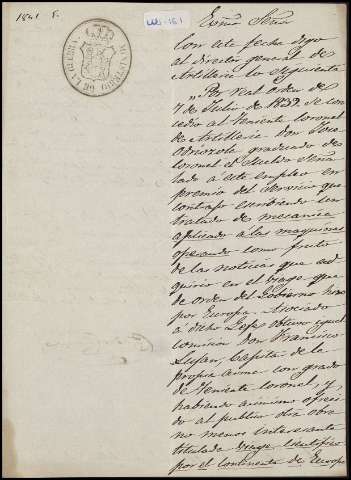 1841 F.
MINISTERIO DE LA GUERRA
Exmo Señor
Con esta fecha digo
al director general de
Artilleria lo siguiente
"Por real orden de
7 de Julio de 1839 se con
cedio al Teniente Coronel
de Artilleria Don Jose
Odriozola graduado de
Coronel el sueldo seña
lado á este empleo en
premio del servicio que
contrajo escribiendo un
tratado de mecanica
aplicado á las maquinas
operando como fruto
de las noticias que ad
quirió en el viage que
de orden del Gobierno hizo
por Europa. Asociado
á dicho Gefe obtuvo igual
comision Don Francisco
Luxan, Capitan de la
propia arma con grado
de Teniente Coronel, y
habiendo asimismo ofreci
do al publico otra obra
no menos interesante
titulada Viage Cientifico
por el continente de Europa